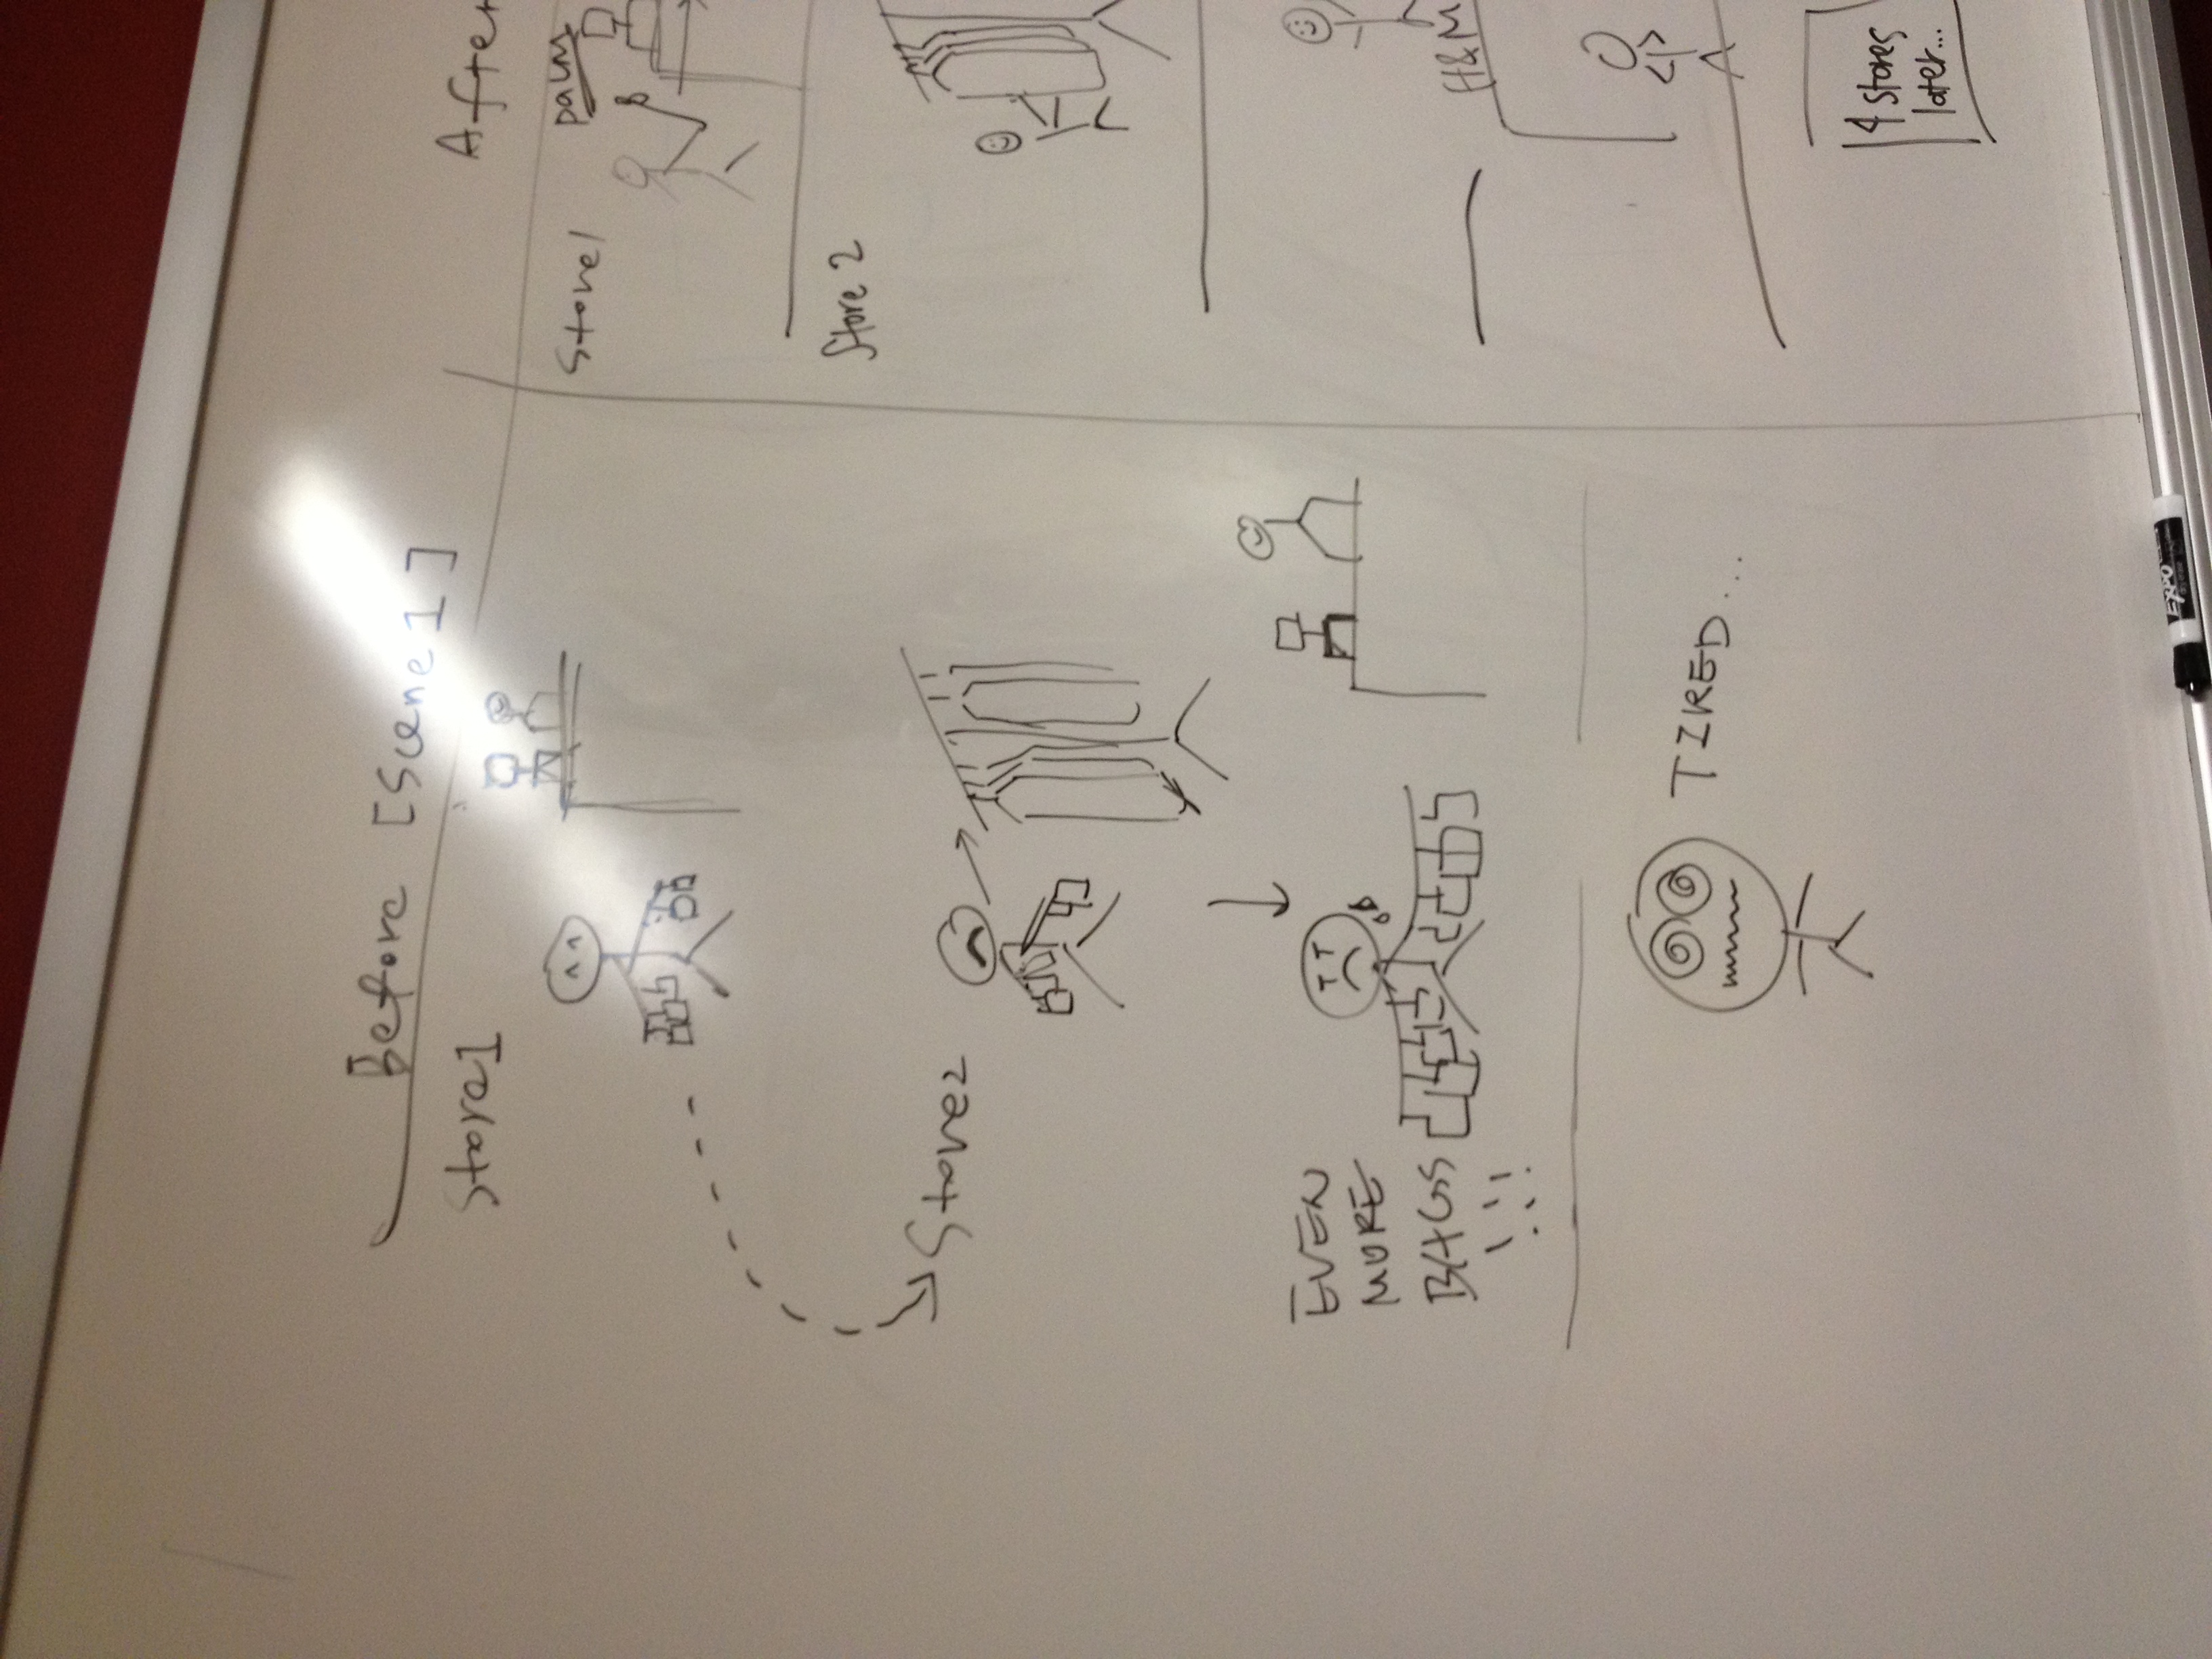 Before [Scene 1]
Store1
Store2
EVEN
MORE
BAGS
!!!
TIRED...
After
Store1
palm
Store 2
H&M
4 stores
later...
EXPO